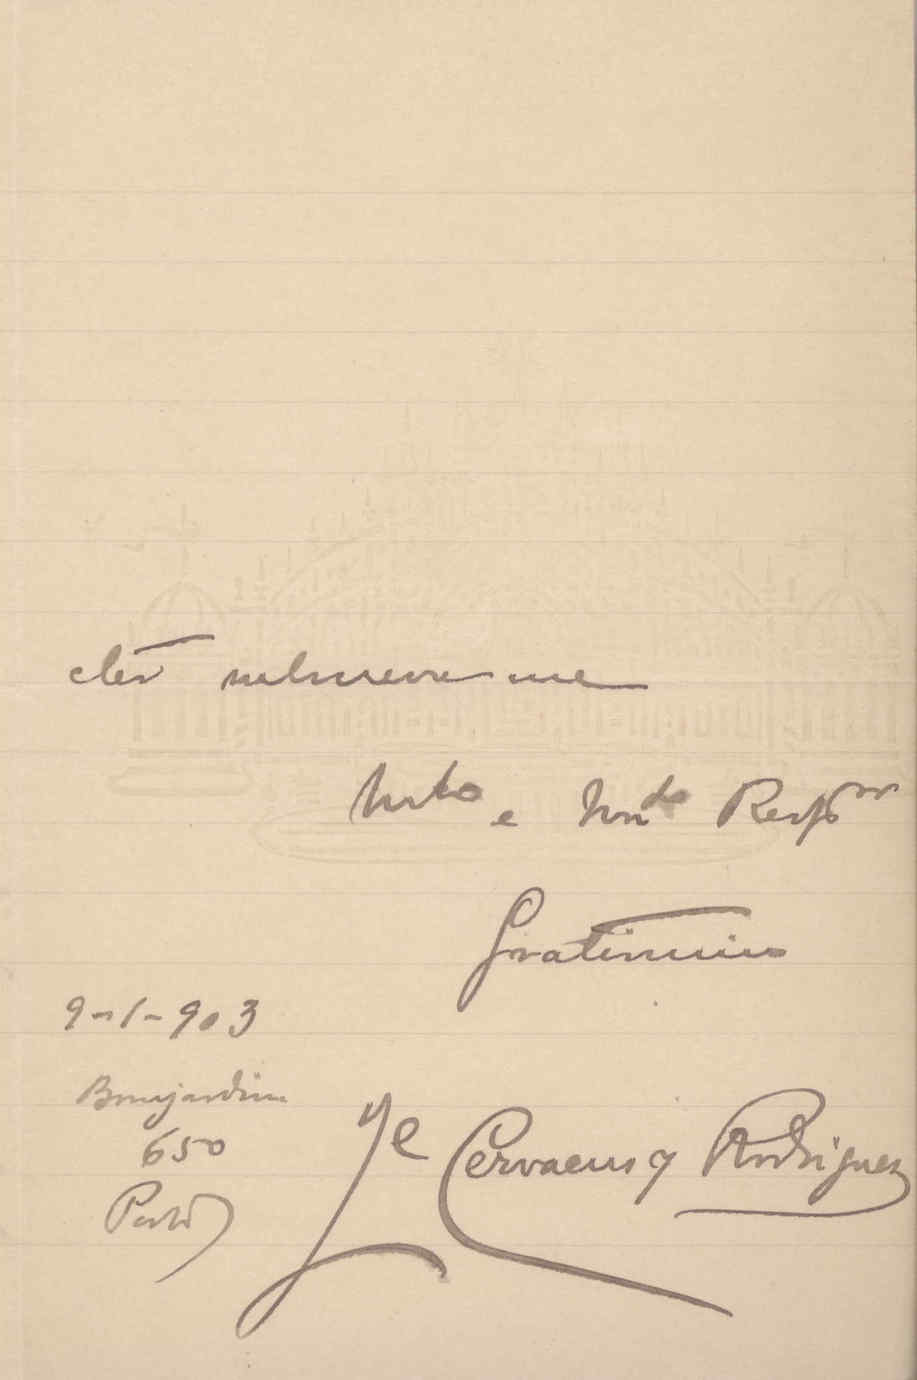 subscrevo-me
Mto e Mmdo Respor
Gratissimo
9-1-903
Bomjardim
650
Porto
Je Cervaens y Rodriguez